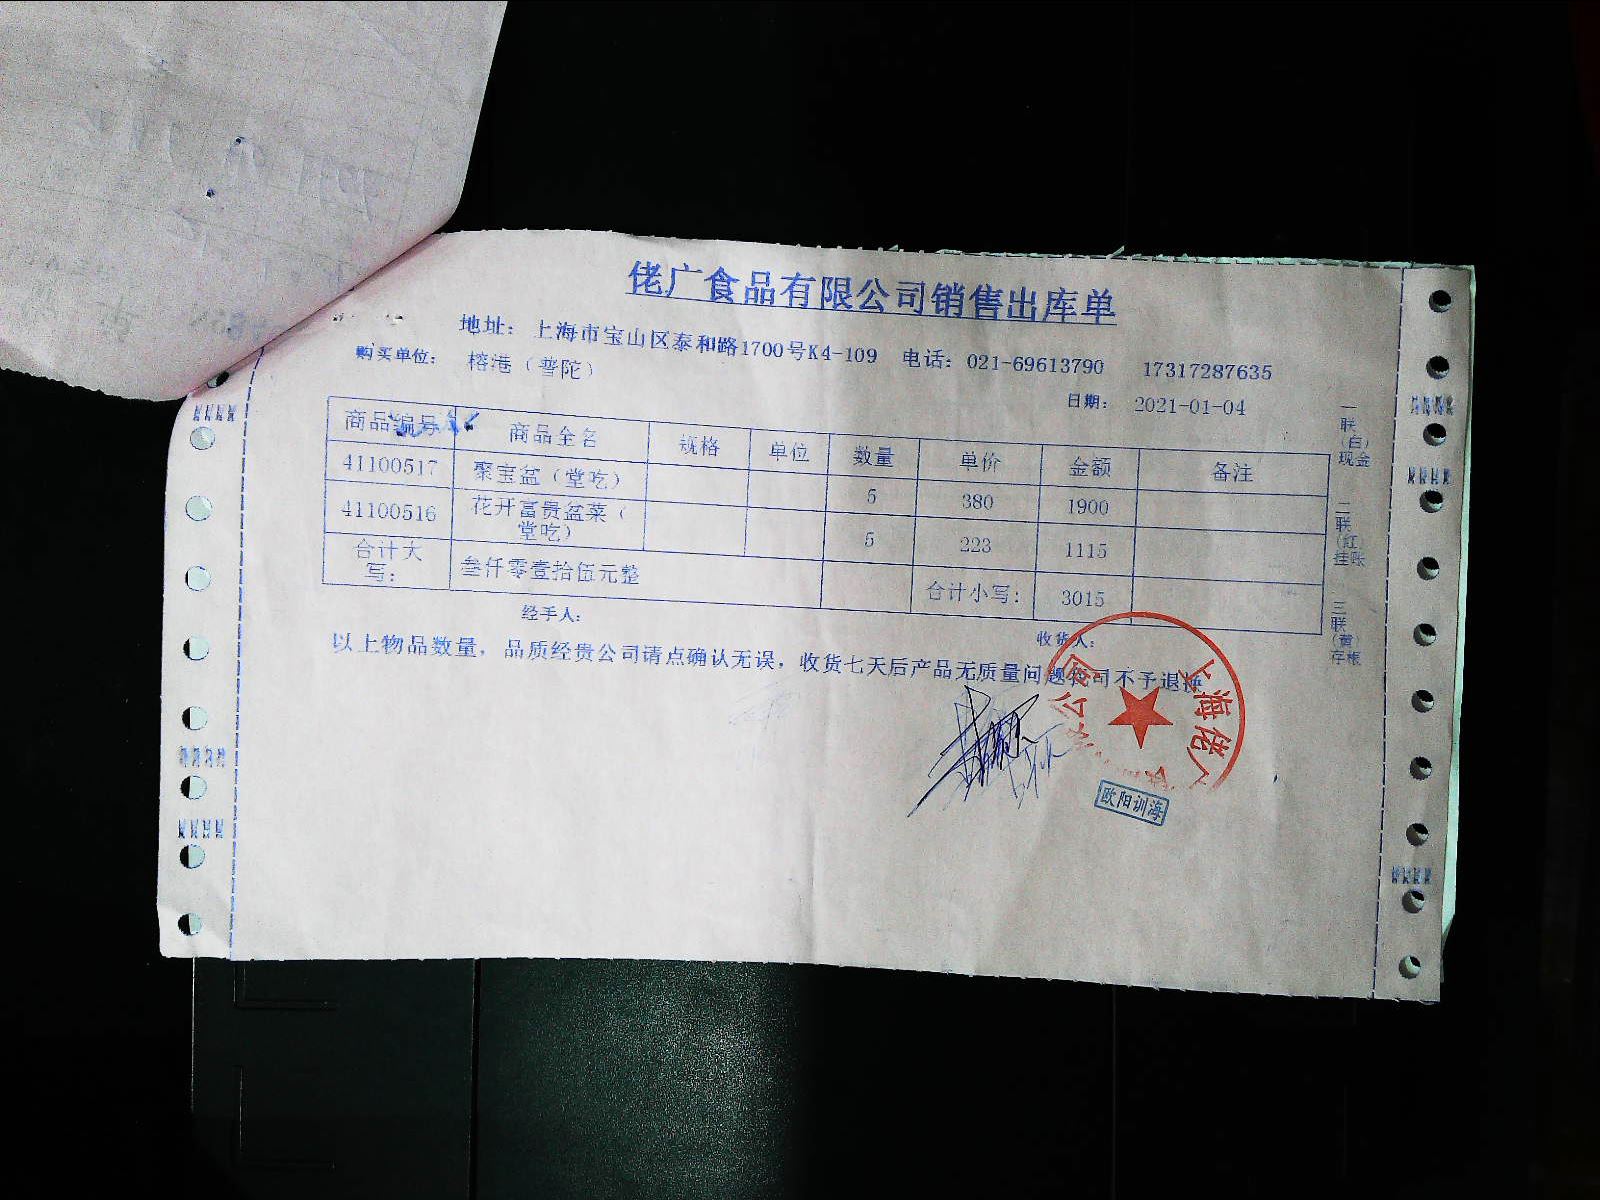 佬广食品有限公司销售出库单
地址： 上海市宝山区泰和路1700号K4-109 电话：021-69613790 17317287635
购买单位： 榕港（普陀）
日期： 2021-01-04
商品编号 商品全名 规格 单位 数量 单价 金额 备注
41100517 聚宝盆（堂吃） 5 380 1900
41100516 花开富贵盆菜（堂吃） 5 223 1115
合计大写： 叁仟零壹拾伍元整 合计小写： 3015
经手人： 收货人：
以上物品数量，品质经贵公司请点确认无误，收货七天后产品无质量问题我司不予退换
一联（白）现金
二联（红）挂账
三联（黄）存根
上海佬
公司
欧阳训海